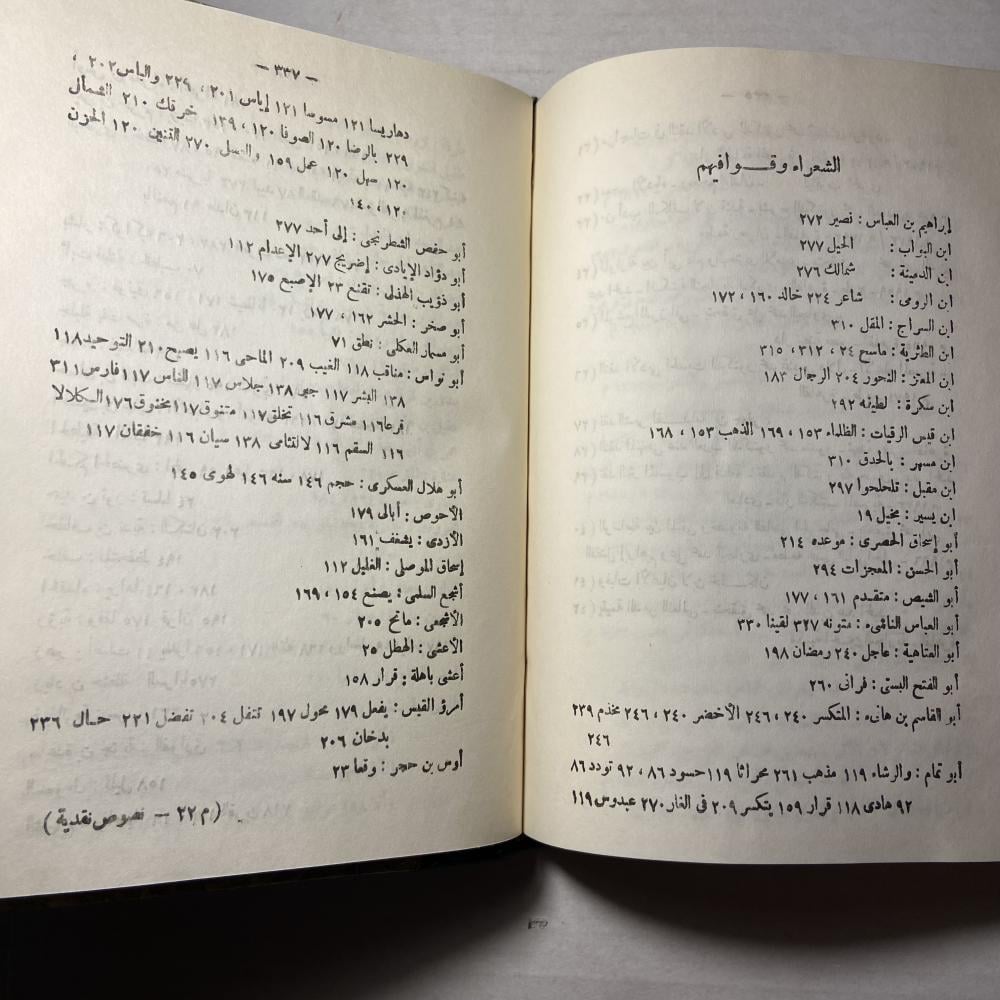 الشعراء وقوافيهم
إراهيم بن العباس : نصير ٢٧٢
ابن البواب : الخيل ٢٧٧
ابن الدمينة : شمالك ٢٧٦
ابن الرومى : شاعر ٢٢٤ خالد ١٦٠ ، ١٧٢
ابن السراج : المقل ٣١٠
ابن الطثرية : ماسح ٢٤ ، ٣١٢ ، ٣١٥
ابن المعتز : النحور ٢٠٤ الرجال ١٨٣
ابن سكرة : لطينه ٢٩٢
ابن قيس الرقيات : الظلماء ١٥٣ ، ١٦٩ الذهب ١٥٣ ، ١٦٨
ابن مسهر : بالحدق ٣١٠
ابن مقبل : تلحلحوا ٢٩٧
ابن يسير : بخيل ١٩
أبو إسحاق الحصرى : موعده ٢١٤
أبو الحسن : المعجزات ٢٩٤
أبو الشيص : متقدم ١٦١ ، ١٧٧
أبو العباس الناشىء : متونه ٣٢٧ لقينا ٣٣٠
أبو العتاهية : عاجل ٢٤٠ رمضان ١٩٨
أبو الفتح البستى : فرانى ٢٦٠
أبو القاسم بن هانىء : المتكسر ٢٤٠ ، ٢٤٦ الأخضر ٢٤٠ ، ٢٤٦ مخذم ٢٣٩
٢٤٦
أبو تمام : والرشاء ١١٩ مذهب ٢٦١ محراثا ١١٩ حسود ٨٦ ، ٩٢ تودد ٨٦
٩٢ هادى ١١٨ قرار ١٥٩ يتكسر ٢٠٩ فى الغار ٢٧٠ عبدوس ١١٩
— ٣٣٧ —
دهاريسا ١٢١ مسوسا ١٢١ إياس ٢٠١ ، ٢٢٩ والباس ٢٠٢ ،
٢٢٩ بالرضا ١٢٠ الصوفا ١٢٠ ، ١٣٩ خرقك ٢١٠ الشمال
١٢٠ سهل ١٢٠ عمل ١٥٩ والسل ٢٧٠ التنين ١٢٠ الحزن
١٢٠ ، ١٤٠
أبو حفص الشطرنجى : إلى أحد ٢٧٧
أبو دؤاد الإيادى : إضريج ٢٧٧ الإعدام ١١٢
أبو ذؤيب الهذلى : تقنع ٢٣ الإصبع ١٧٥
أبو صخر : الحشر ١٦٢ ، ١٧٧
أبو مسمار العكلى : نطق ٧١
أبو نواس : مناقب ١١٨ الغيب ٢٠٩ الماحى ١١٦ يصيح ٢١٠ التوحيد ١١٨
١٣٨ البشر ١١٧ جبر ١٣٨ جلاس ١١٧ للناس ١١٧ فارس ٣١١
فرعا ١١٦ مشرق ١١٦ تخلق ١١٧ متنوق ١١٧ بمخنوق ١٧٦ السكلالا
١١٦ السقم ١١٦ لالتثامى ١٣٨ سيان ١١٦ خفقان ١١٧
أبو هلال العسكرى : حجم ١٤٦ سنه ١٤٦ لهوى ١٤٥
الأحوص : أبالى ١٧٩
الأزدى : يشغف ١٦١
إسحاق الموصلى : الغليل ١١٢
أشجع السلمى : يصنع ١٥٤ ، ١٦٩
الأشجعى : مانح ٢٠٥
الأعشى : الهطل ٢٥
أعشى باهلة : قرار ١٥٨
أمرؤ القيس : يفعل ١٧٩ محول ١٩٧ تنفل ٢٠٤ تفضل ٢٢١ حال ٢٣٦
بدخان ٢٠٦
أوس بن حجر : وقعا ٢٣
(م ٢٢ — نصوص نقدية)